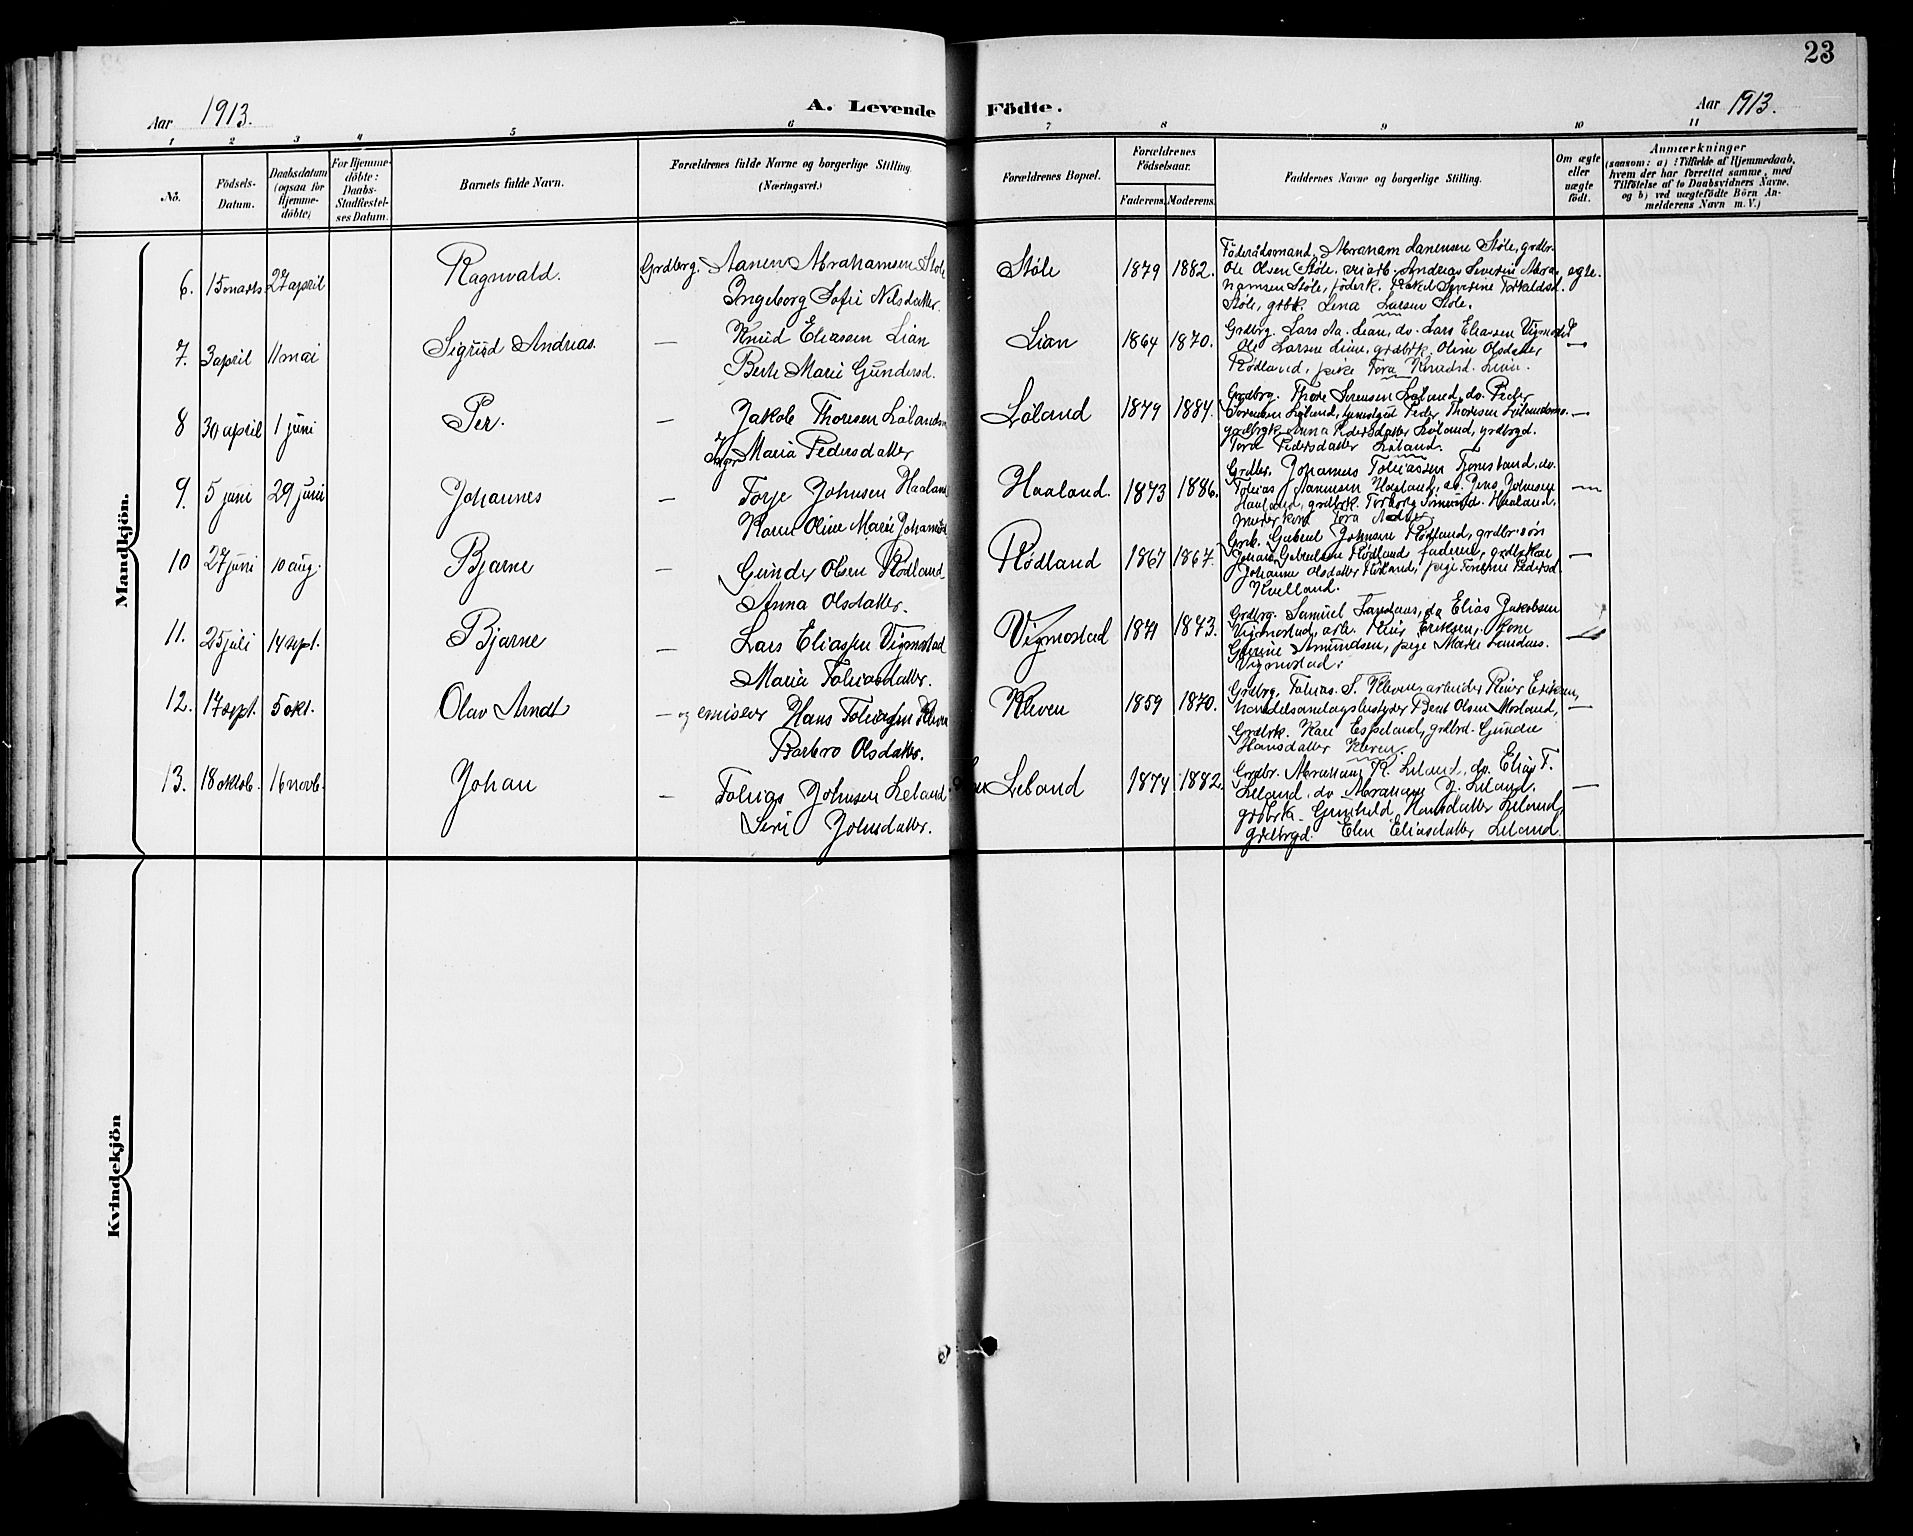 23
Aar 1913.
A. Levende Födte.
Aar 1913.
1 2 3 4 5 6 7 8 9 10 11
No.
Födsels-
Datum.
Daabsdatum
(ogsaa for
Hjemme-
döbte)
For Hjemme-
döbte:
Daabs-
Stadfæstel-
ses Datum.
Barnets fulde Navn.
Forældrenes fulde Navne og borgerlige Stilling.
(Næringsvei.)
Forældrenes Bopæl.
Forældrenes
Födselsaar.
Faderens.
Moderens.
Faddernes Navne og borgerlige Stilling.
Om ægte
eller
uægte
födt.
Anmærkninger
(saasom: a) : Tilfælde af Hjemmedaab,
hvem der har forrettet samme, med
Tilföielse af to Daabsvidners Navne,
og b) ved uægtefödte Börn An-
melderens Navn m. V.)
Mandkjön.
6. 15 marts 27 april
Ragnvald.
Grdbrg. Aanen Abrahamsen Støle
Ingeborg Sofie Nilsdatter.
Støle 1879 1882.
Føderådsmand Abraham Aanensen Støle, grdbr.
Ole Olsen Støle, Andreas Severin Abra-
hamsen Støle, føderk. Rakel Severine Torkeldsd.
Støle, grbk. Lena Larsen Støle.
ægte.
7. 3 april 11 mai
Sigurd Andreas.
— Knud Eliassen Lian
Berte Marie Gundersd.
Lian 1864 1870.
Grdbrg. Lars Aa. Lian, do. Lars Eliasen Vigmostad
Ole Larsen Lian, grdbrk. Oline Olsdatter
Rødland, pike Tora Knudsd. Lian.
—
8 30 april 1 juni
Per.
— Jakob Thoresen Løland
Inger Maria Pedersdatter
Løland 1879 1884.
Grdbrg. Thore Sørensen Løland, do. Peder
Sørensen Løland, Peder Thoresen Løland
grdbrgk. Anna Pedersdatter Løland, grdbrgd.
Tora Pedersdatter Løland.
—
9. 5 juni 29 juni
Johannes
— Torje Johnsen Haaland
Karen Oline Marie
Haaland. 1873 1886.
Grdbr. Johannes Tobiassen
Tobias Aanensen do. Jens Johnsen
Haaland, grdbrk. Torborg Haaland.
Tora
—
10 27 juni 10 aug.
Bjarne
— Gunder Olsen Rødland
Anna Olsdatter.
Rødland 1867 1867.
Gabriel Johnsen Rødland, grdbr. søn
Johan Gabrielsen Rødland faderen, grdbrkone
Johanne Olsdatter Rødland, pige Pedersd.
Kvelland.
—
11. 25 juli 14 sept.
Bjarne
— Lars Eliassen Vigmostad
Maria Tobiasdatter.
Vigmostad 1871 1873.
Grdbrg. Samuel do Elias Jakobsen
Vigmostad, arb. Reier Eriksen, kone
Gurine Amundsen, pige Marie
Vigmostad.
—
12. 17 sept. 5 okt.
Olav Arndt
— og emisær Hans Tobiassen Kleven
Barbro Olsdatter.
Kleven 1859 1870.
Grdbrg. Tobias S. Kleven, arbeider Reier Eriksen,
handelsanlagsbestyrer Bent Olsen Mosland,
Grdbrk. Kari Espeland, grdbrd. Gundre
Hansdatter Kleven.
—
13. 18 oktob. 16 novb.
Johan
— Tobias Johnsen Leland
Siri Johnsdatter.
Leland 1874 1882.
Grdbr. Abraham K. Leland, do. Elias T.
Leland, do Abraham J. Leland,
grdbrk. Gunhild Hansdatter Leland,
grdbrgd. Elen Eliasdatter Leland.
—
Kvindekjön